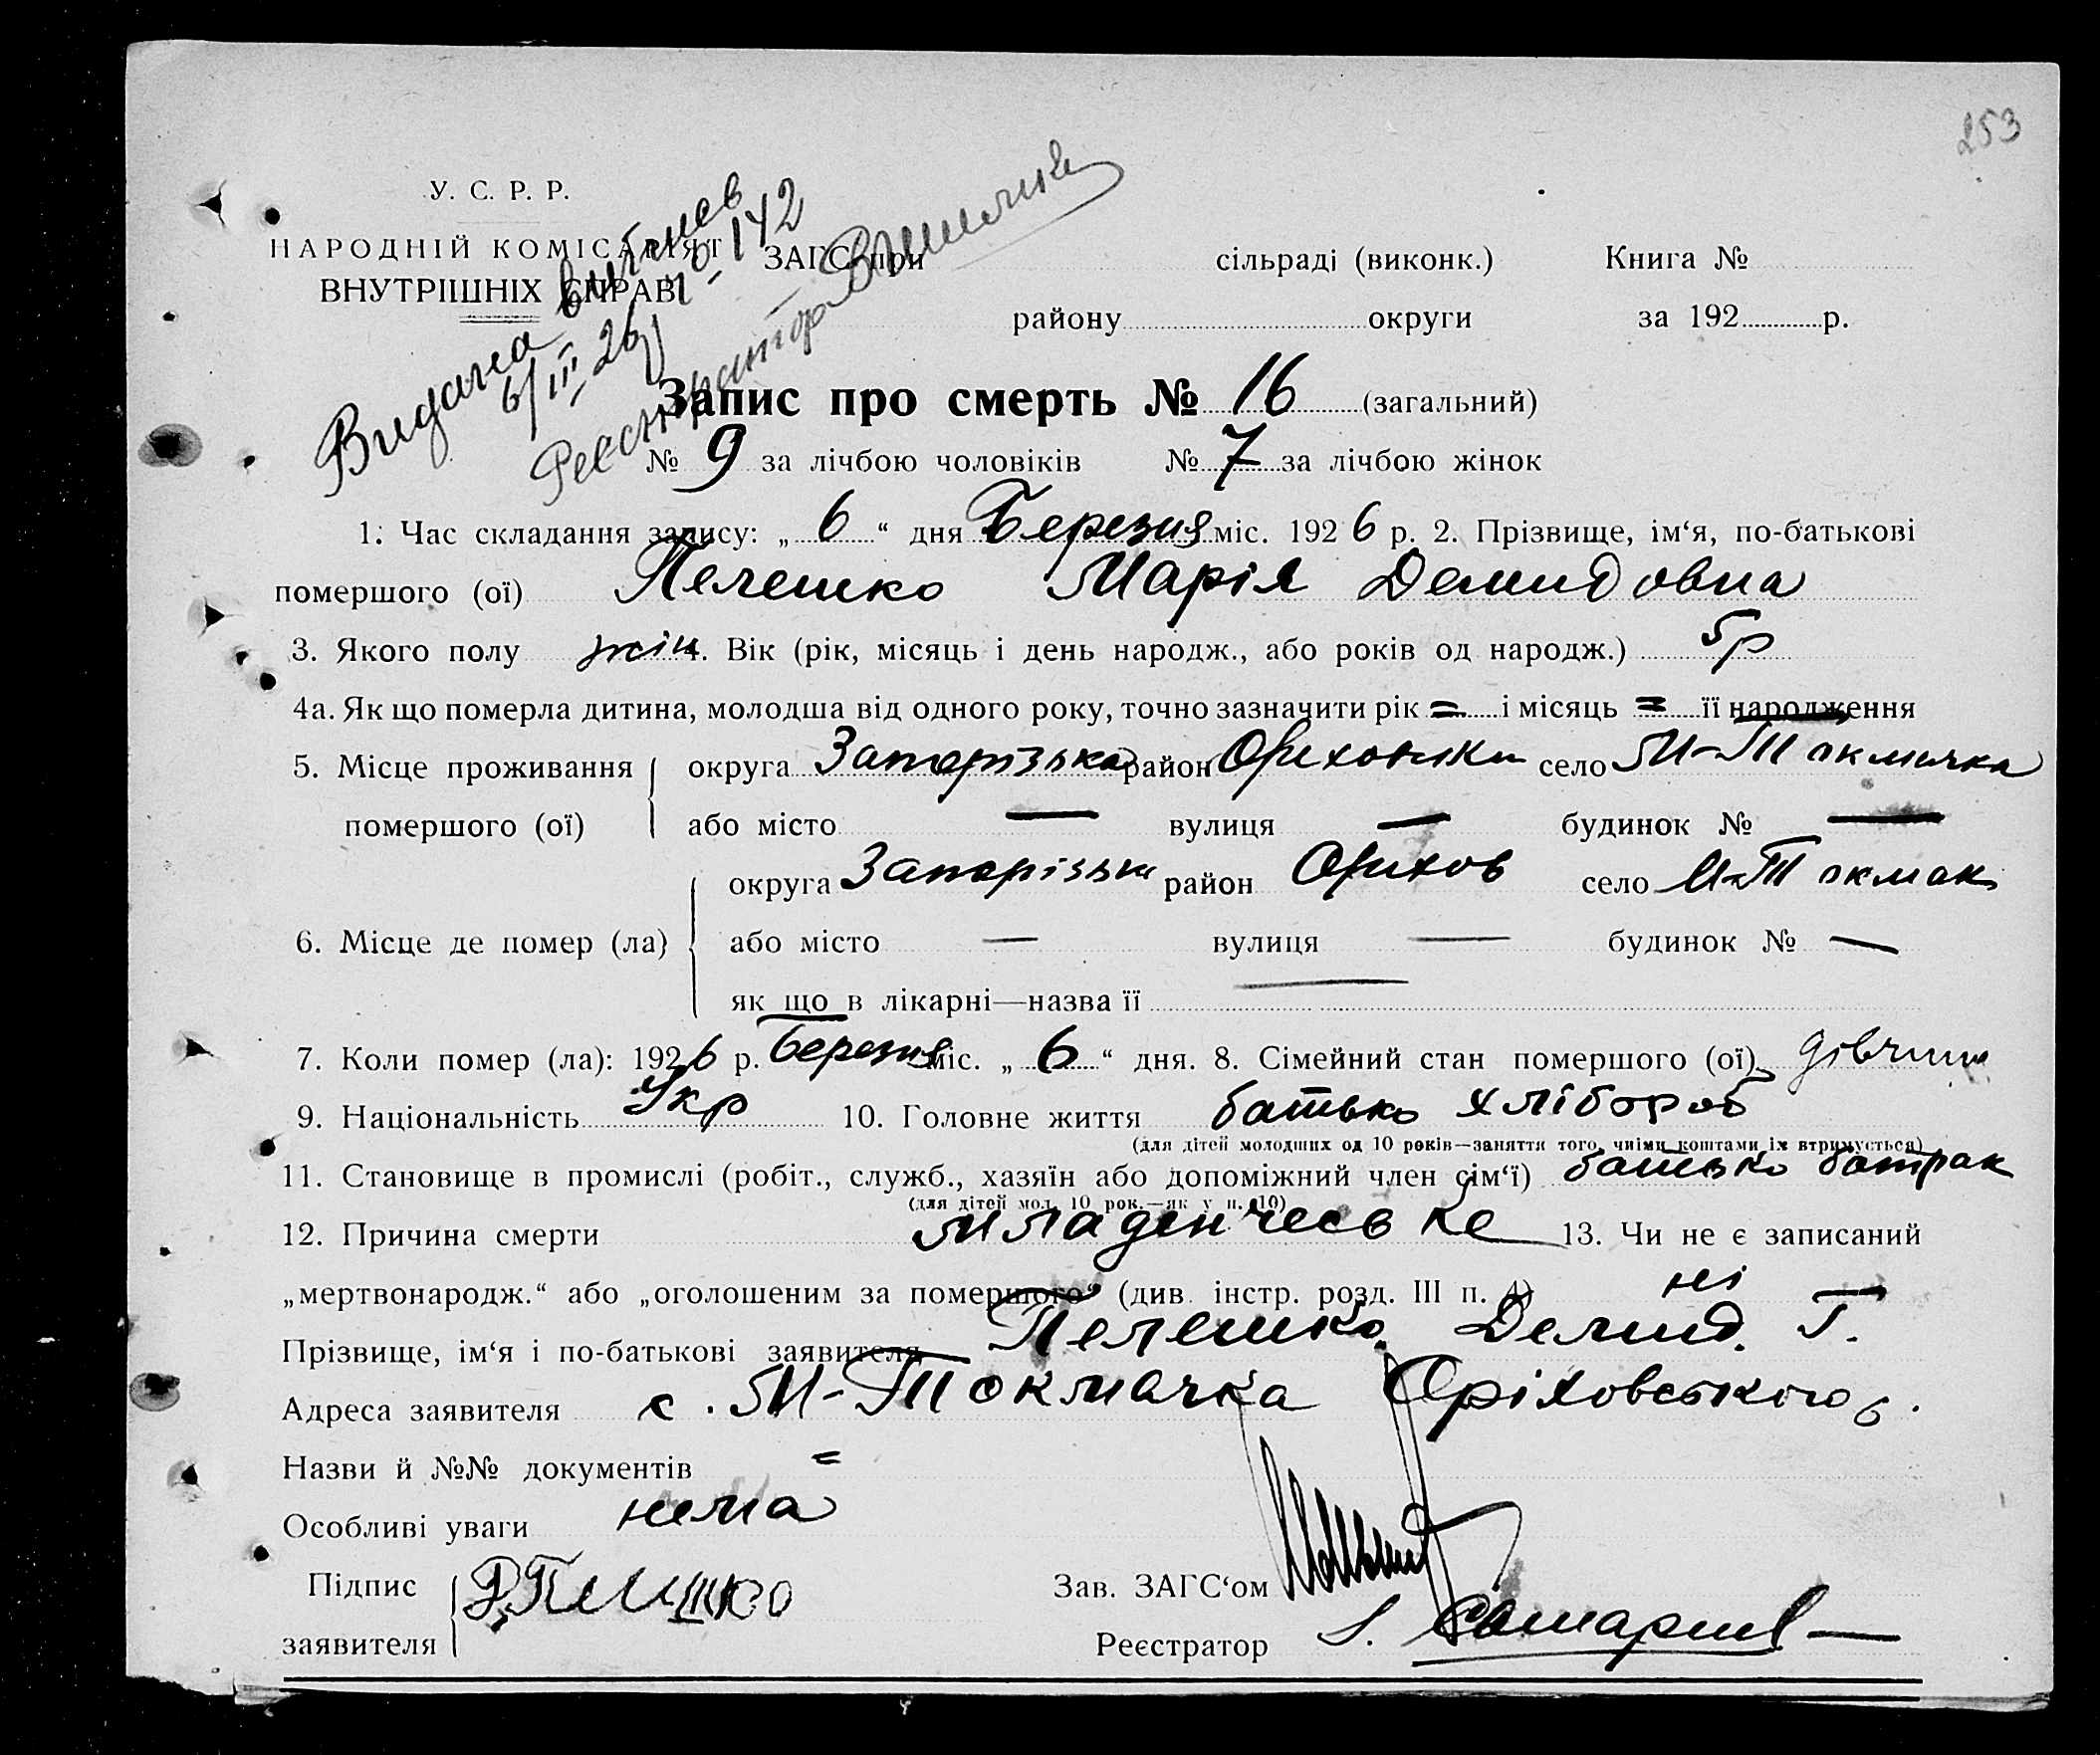 253
У. С. Р. Р.
НАРОДНІЙ КОМІСАРІЯТ
ВНУТРІШНІХ СПРАВ
ЗАГС при сільраді (виконк.) Книга №
району округи за 192 р.
Видана
6/III 26 № 142
Реєстратор
Запис про смерть № 16 (загальний)
№ 9 за лічбою чоловіків № 7 за лічбою жінок
1. Час складання запису: „ 6 “ дня Березня міс. 1926 р. 2. Прізвище, ім‘я, по-батькові
помершого (ої) Пелешко Марія Демидовна
3. Якого полу жін 4. Вік (рік, місяць і день народж., або років од народж.) 5р
4а. Як що померла дитина, молодша від одного року, точно зазначити рік = і місяць = її народження
5. Місце проживання округа Запорізька район село М-Токмачка
помершого (ої) або місто — вулиця — будинок № —
округа район Оріхов село М-Токмак
6. Місце де помер (ла) або місто — вулиця — будинок № —
як що в лікарні—назва її —
7. Коли помер (ла): 1926 р. Березня міс. „ 6 “ дня. 8. Сімейний стан помершого (ої) дівчина
9. Національність Укр 10. Головне життя батько хлібороб
(для дітей молодших од 10 років—заняття того, чиїми коштами їх втримується)
11. Становище в промислі (робіт., служб., хазяїн або допоміжний член сім‘ї) батько батрак
(для дітей мол. 10 рок.—як у п. 10)
12. Причина смерти младенческе 13. Чи не є записаний
„мертвонародж.“ або „оголошеним за помершого“ (див. інстр. розд. III п. 4) ні
Прізвище, ім‘я і по-батькові заявителя Пелешко Демид. Г.
Адреса заявителя с. М-Токмачка Оріховського р.
Назви й №№ документів =
Особливі уваги нема
Підпис
заявителя
Зав. ЗАГС‘ом
Реєстратор